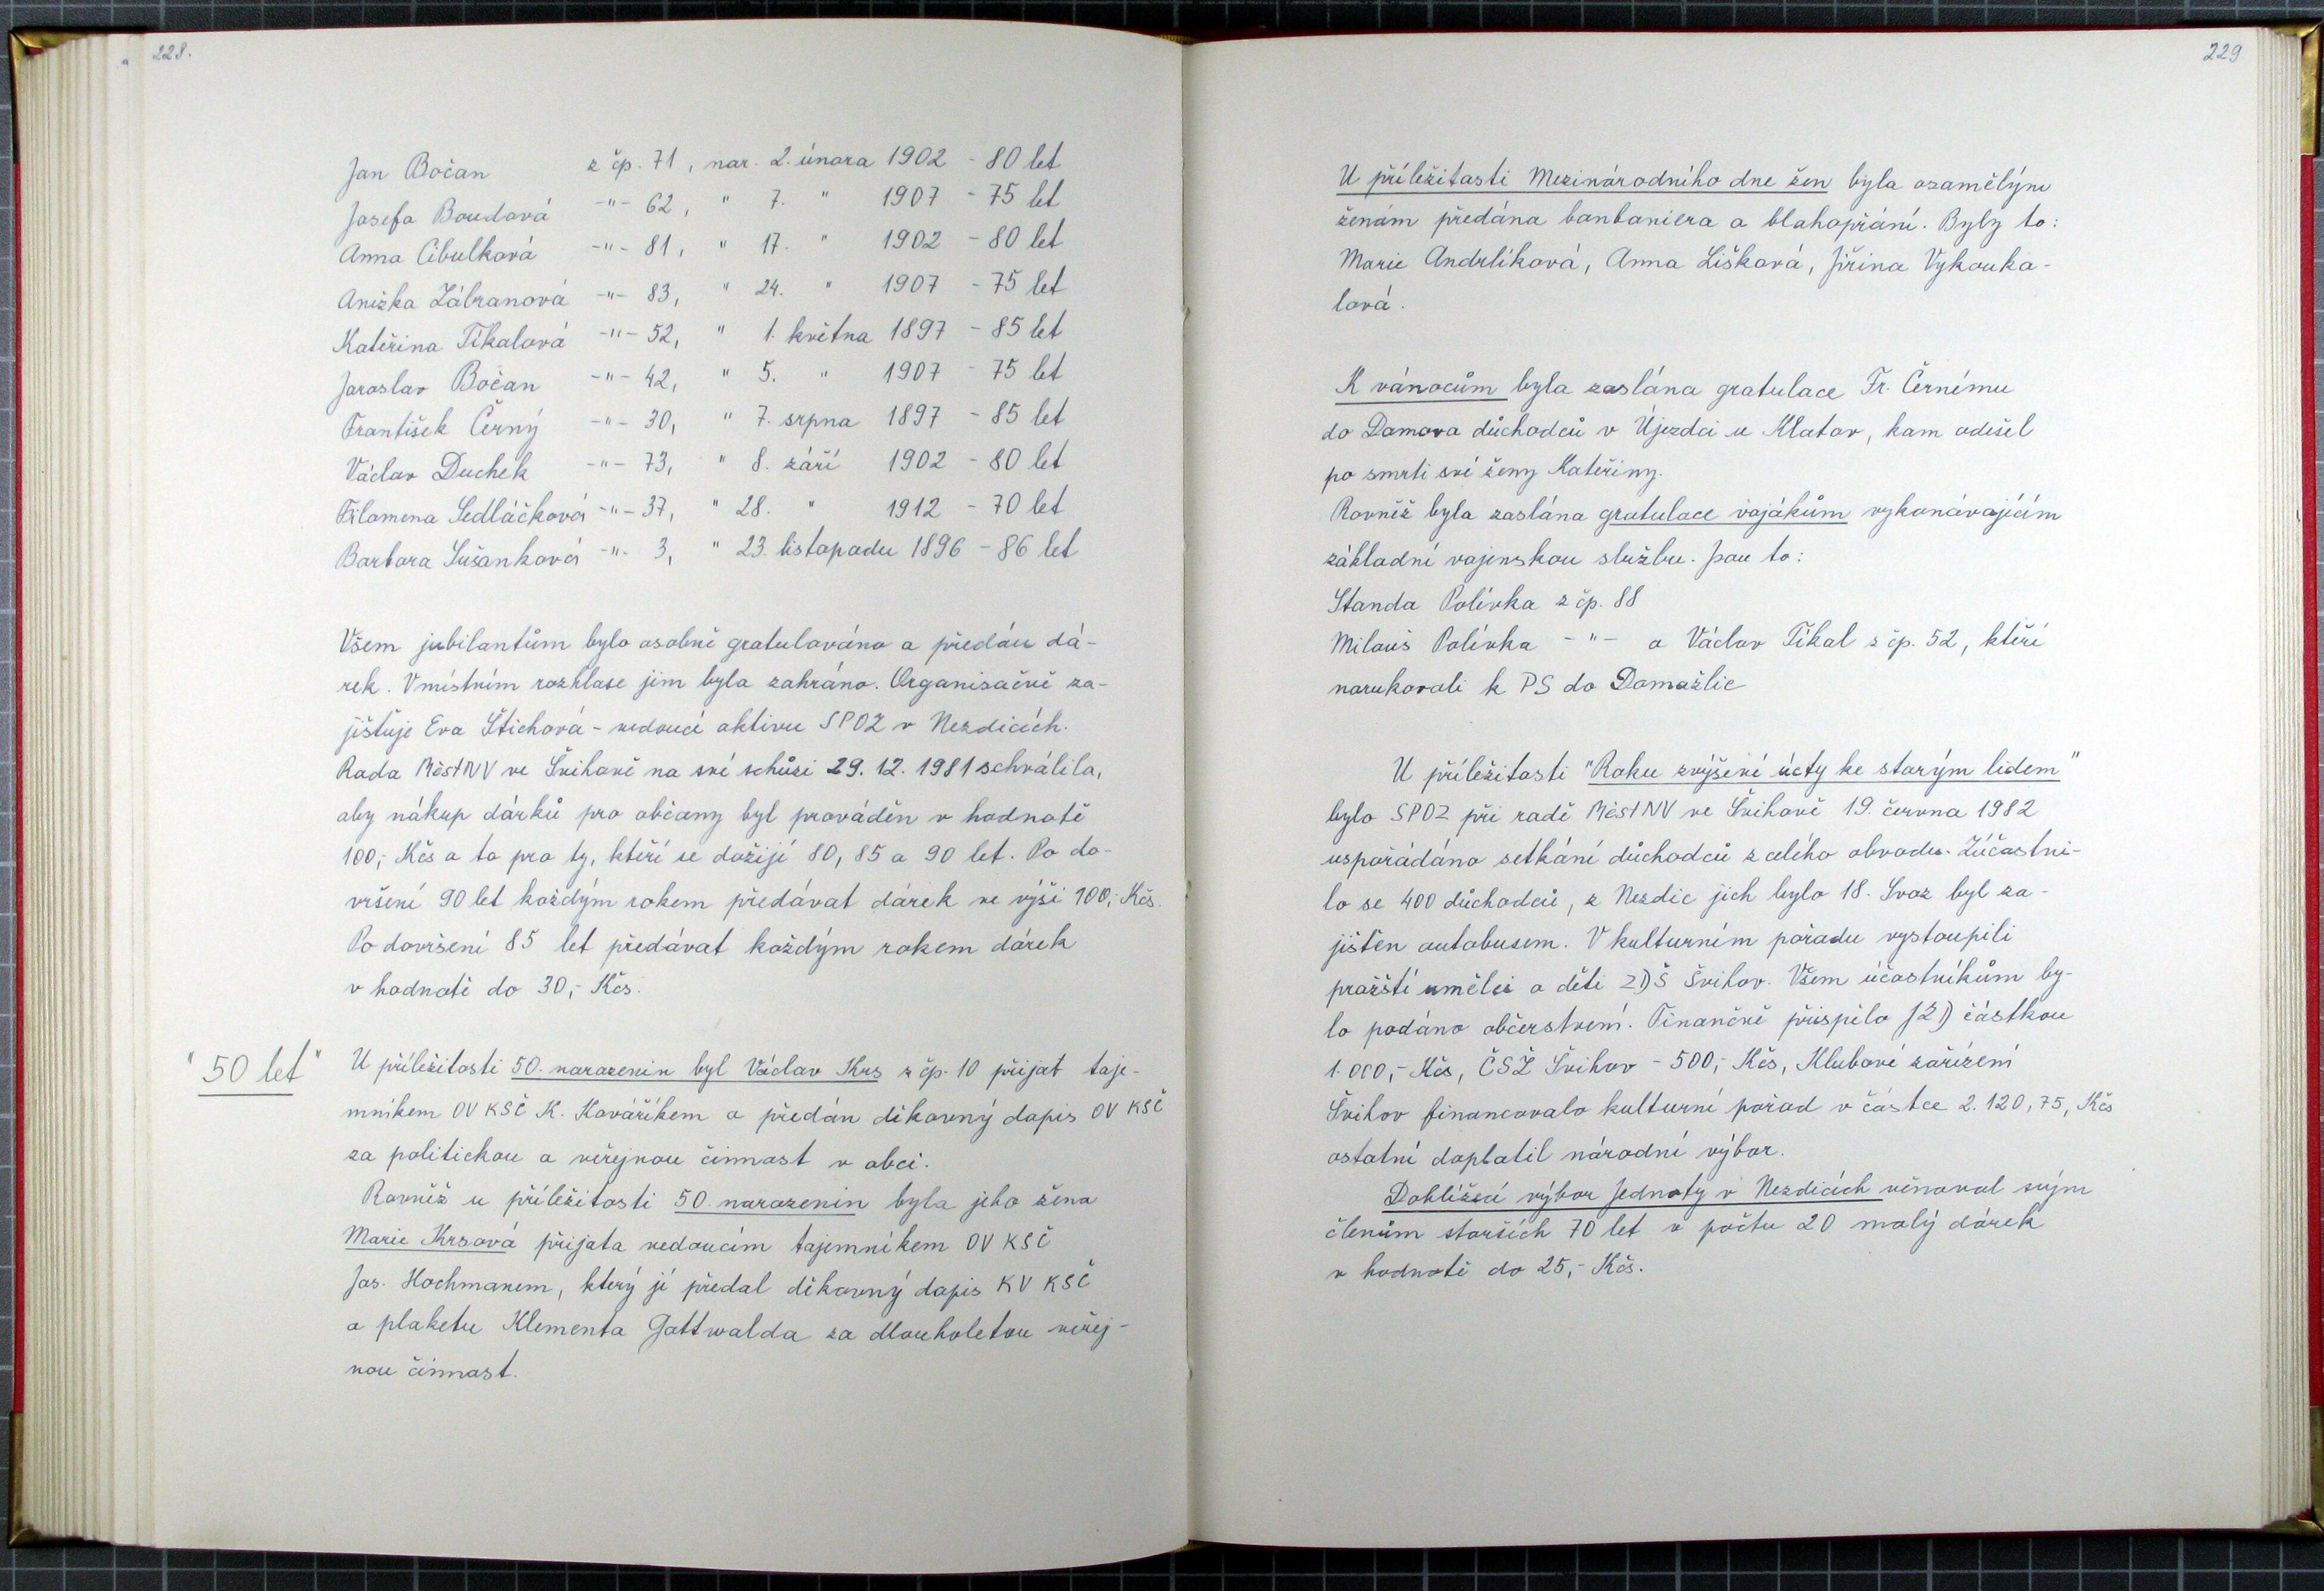 228.
Jan Bočan z čp. 71, nar. 2. února 1902 - 80 let
Josefa Boudová -"- 62, " 7. " 1907 - 75 let
Anna Cibulková -"- 81, " 17. " 1902 - 80 let
Anežka Zábranová -"- 83, " 24. " 1907 - 75 let
Kateřina Tikalová -"- 52, " 1. května 1897 - 85 let
Jaroslav Bočan -"- 42, " 5. " 1907 - 75 let
František Černý -"- 30, " 7. srpna 1897 - 85 let
Václav Duchek -"- 73, " 8. září 1902 - 80 let
Filomena Sedláčková -"- 37, " 28. " 1912 - 70 let
Barbora Sušanková -"- 3, " 23. listopadu 1896 - 86 let
Všem jubilantům bylo osobně gratulováno a předán dá-
rek. V místním rozhlase jim byla zahráno. Organisačně za-
jišťuje Eva Štichová - vedoucí aktivu SPOZ v Nezdicích.
Rada MěstNV ve Švihově na své schůzi 29. 12. 1981 schválila,
aby nákup dárků pro občany byl prováděn v hodnotě
100,- Kčs a to pro ty, kteří se dožijí 80, 85 a 90 let. Po do-
vršení 90 let každým rokem předávat dárek ve výši 100,- Kčs.
Po dovršení 85 let předávat každým rokem dárek
v hodnotě do 30,- Kčs.
"50 let"
U příležitosti 50. narozenin byl Václav Krs z čp. 10 přijat taje-
mníkem OV KSČ K. Kováříkem a předán děkovný dopis OV KSČ
za politickou a veřejnou činnost v obci.
Rovněž u příležitosti 50. narozenin byla jeho žena
Marie Krsová přijata vedoucím tajemníkem OV KSČ
Jos. Hochmanem, který jí předal děkovný dopis KV KSČ
a plaketu Klementa Gottwalda za dlouholetou veřej-
nou činnost.
229
U příležitosti Mezinárodního dne žen byla osamělým
ženám předána bonboniera a blahopřání. Byly to:
Marie Andrlíková, Anna Lišková, Jiřina Vykouka-
lová.
K vánocům byla zaslána gratulace Fr. Černému
do Domova důchodců v Újezdci u Klatov, kam odešel
po smrti své ženy Kateřiny.
Rovněž byla zaslána gratulace vojákům vykonávajícím
základní vojenskou službu. Jsou to:
Standa Polívka z čp. 88
Milouš Polívka -"- a Václav Tikal z čp. 52, kteří
narukovali k PS do Domažlic
U příležitosti "Roku zvýšení úcty ke starým lidem"
bylo SPOZ při radě MěstNV ve Švihově 19. června 1982
uspořádáno setkání důchodců z celého obvodu. Zúčastni-
lo se 400 důchodců, z Nezdic jich bylo 18. Svoz byl za-
jištěn autobusem. V kulturním pořadu vystoupili
pražští umělci a děti ZDŠ Švihov. Všem účastníkům by-
lo podáno občerstvení. Finančně přispělo JZD částkou
1.000,- Kčs, ČSŽ Švihov - 500,- Kčs, Klubové zařízení
Švihov financovalo kulturní pořad v částce 2.120,75, Kčs
ostatní doplatil národní výbor.
Dohlížecí výbor Jednoty v Nezdicích věnoval svým
členům starších 70 let v počtu 20 malý dárek
v hodnotě do 25,- Kčs.